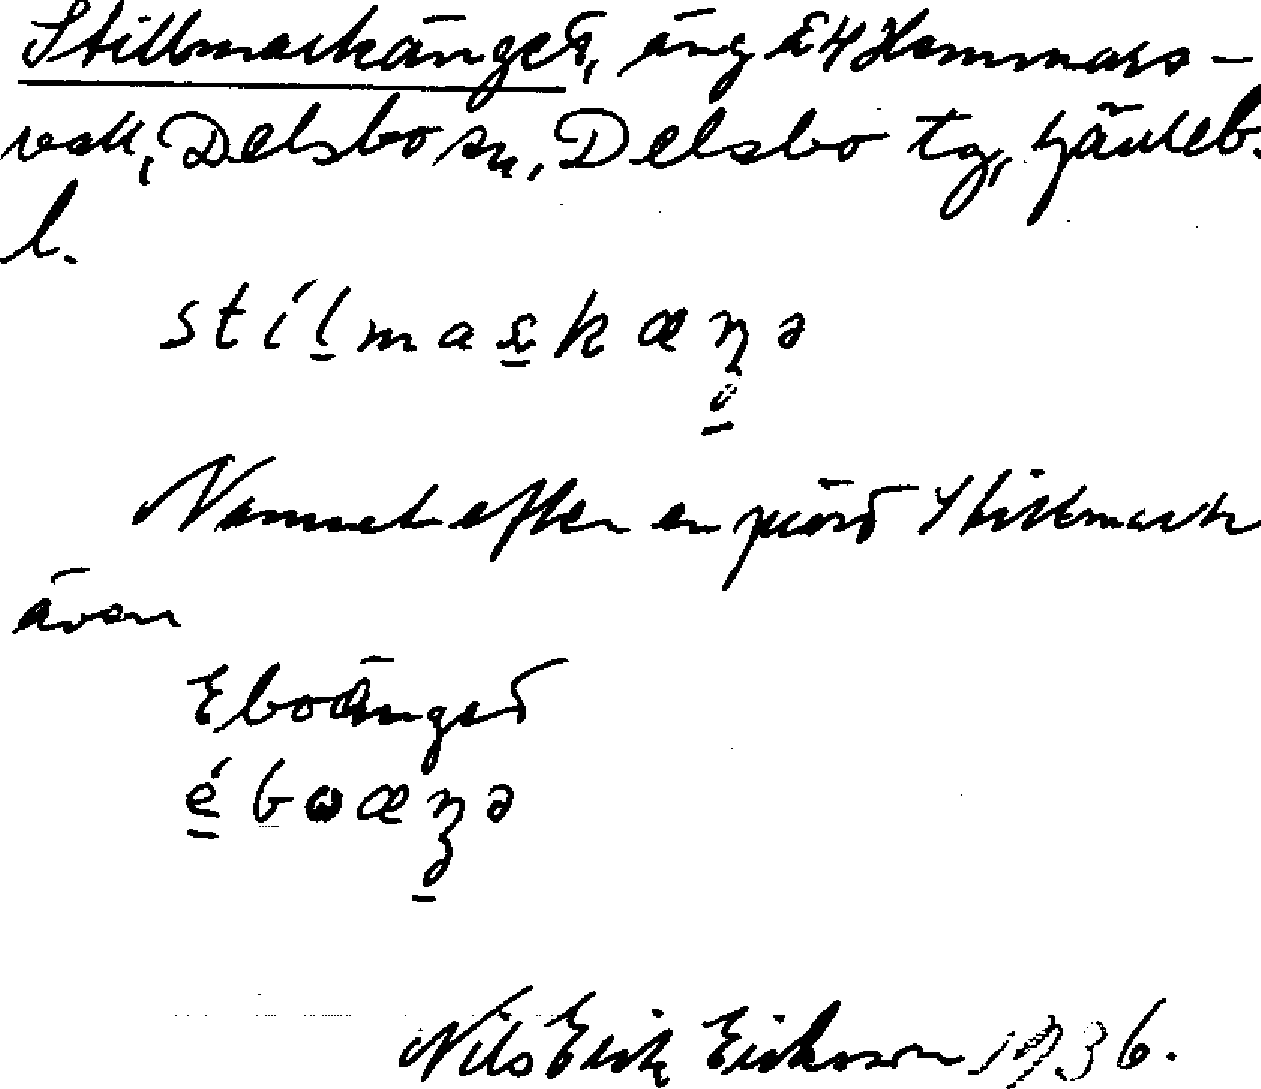 Stillmarkänget, äng å 4 Hammars-
vall, Delsbo sn, Delsbo tg, Gävleb.
l.
stílmaʂkæŋə
Namnet efter en jord Stillmark
även
Eboänget
éboæŋə
Nils Erik Eriksson 1936.